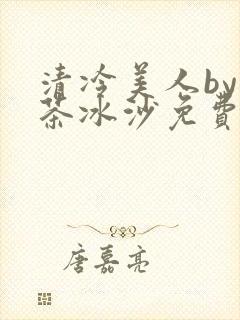 清冷美人by
茶冰沙免費
唐嘉亮